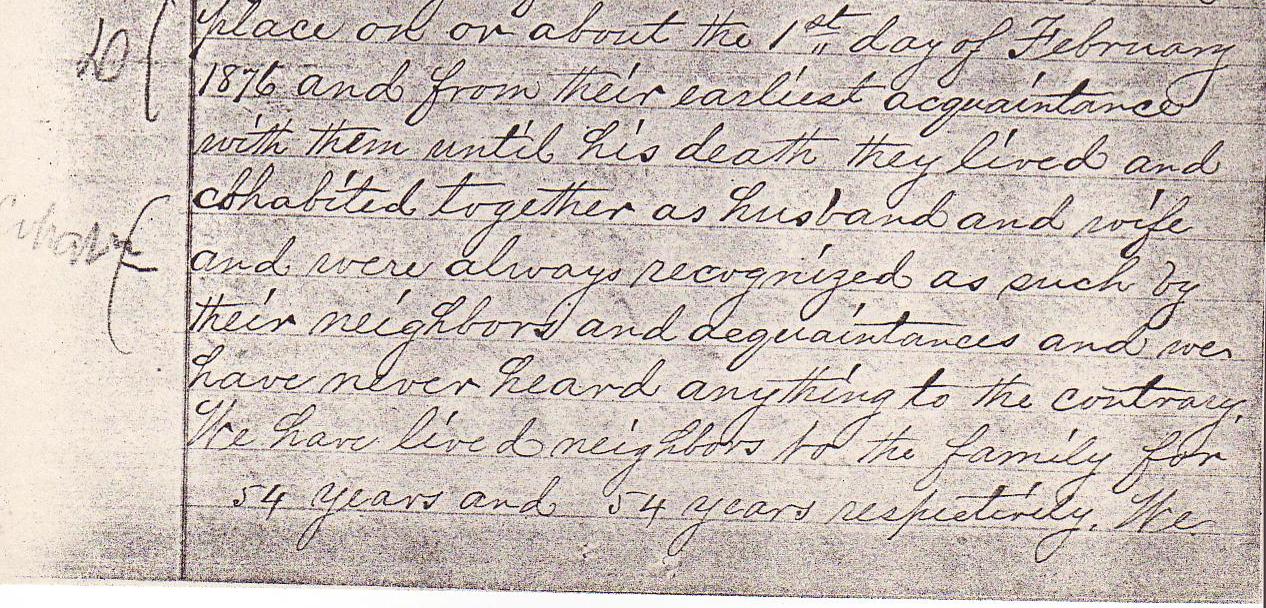 place on or about the 1st day of February
1876 and from their earliest acquaintance
with them until his death they lived and
cohabited together as husband and wife
and were always recognized as such by
their neighbors and acquaintances and we
have never heard anything to the contrary.
We have lived neighbors to the family for
54 years and 54 years respectively. We